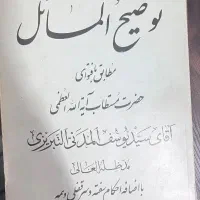 توضیح المسائل
مطابق با فتوای
حضرت مستطاب آیة الله العظمی
آقای سید یوسف المدنی التبریزی
مد ظله العالی
با اضافه احکام سفته و سرقفلی و بیمه